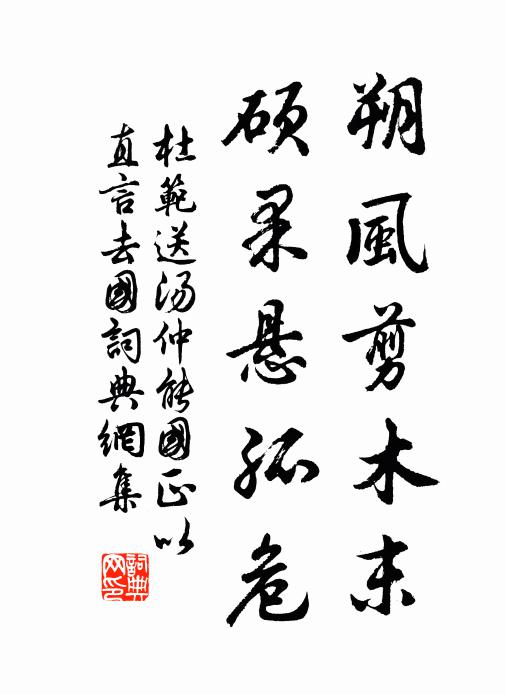 朔風剪木末
碩果悬孤危
杜範送汤仲能國正以
直言去國詞典網集
詞典網印